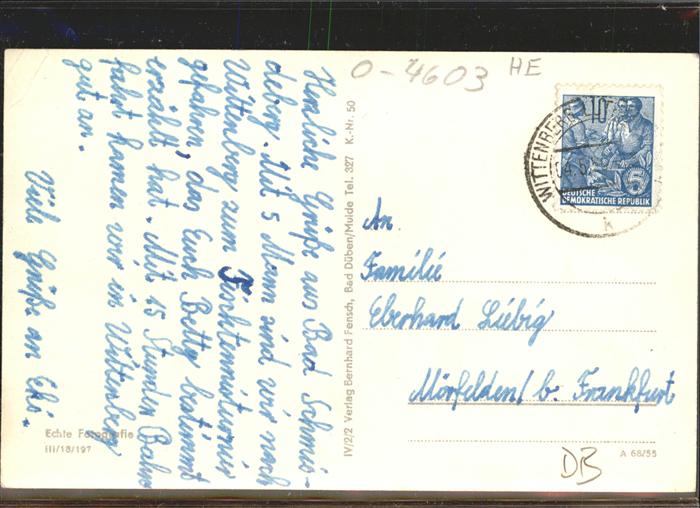 O-4603 HE
Herzliche Grüße aus Bad Schmie-
deberg. Mit 5 Mann sind wir nach
Wittenberg zum Tischtennisturnier
gefahren, das Euch Betty bestimmt
erzählt hat. Mit 15 Stunden Bahn
fahrt kamen wir in Wittenberg
gut an.
Viele Grüße an Euch.
IV/2/2 Verlag Bernhard Fensch, Bad Düben/Mulde Tel. 327 K.-Nr. 50
WITTENBERG
10
5
DEUTSCHE
DEMOKRATISCHE REPUBLIK
k
An
Familie
Eberhard Liebig
Mörfelden/ b. Frankfurt
Echte Fotografie
III/18/197
DB
A 68/55